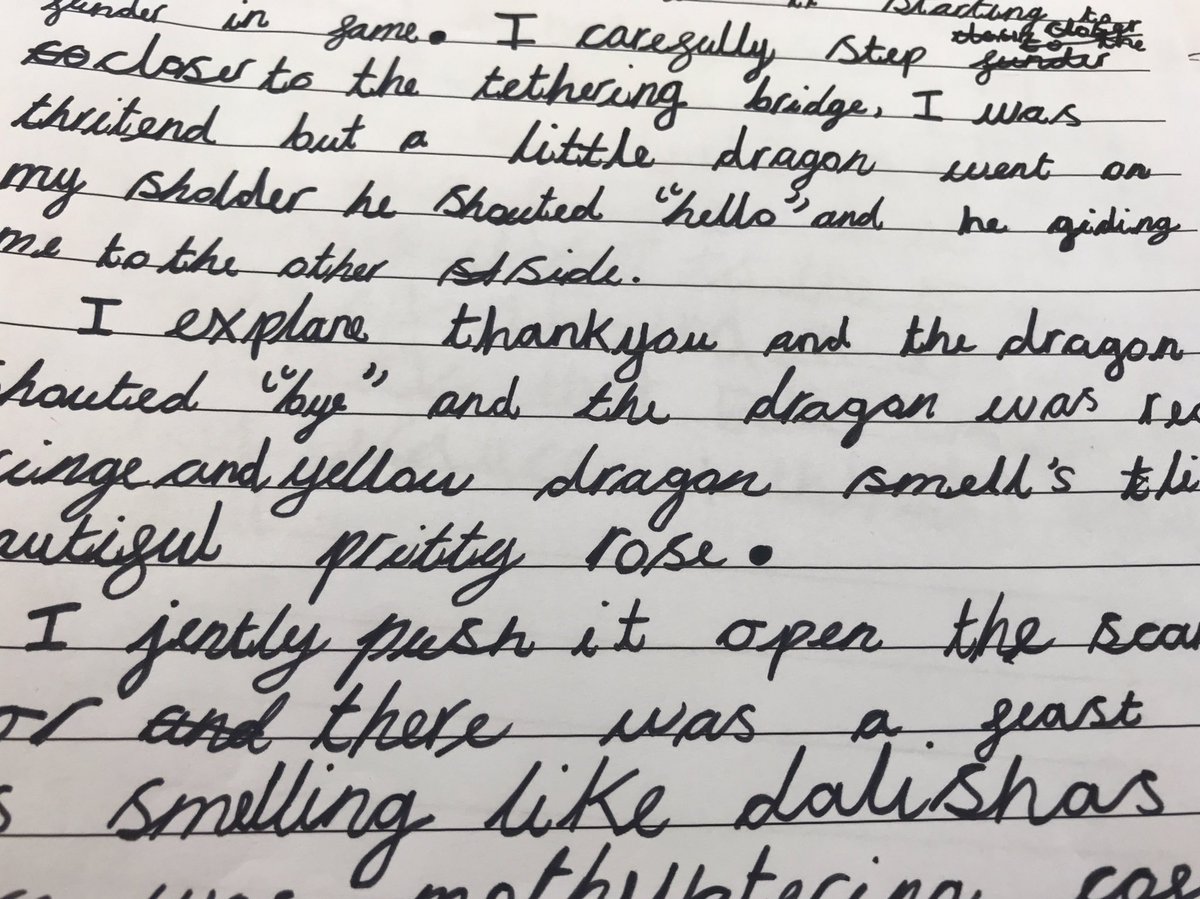 in game. I carefully step
closer to the tethering bridge, I was
thritend but a little dragon went on
my sholder he shouted "hello" and he giding
me to the other side.
I explane thankyou and the dragon
shoutied "bye" and the dragon was
and yellow dragon smell's
pritty rose.
I jently push it open the
there was a feast
smelling like dalishas